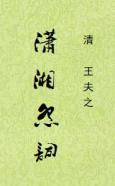 清 王夫之
潇湘怨詞